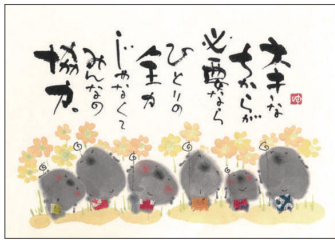 大きな
ちからが
必要なら
ひとりの
全力
じゃなくて
みんなの
協力。
ゆ